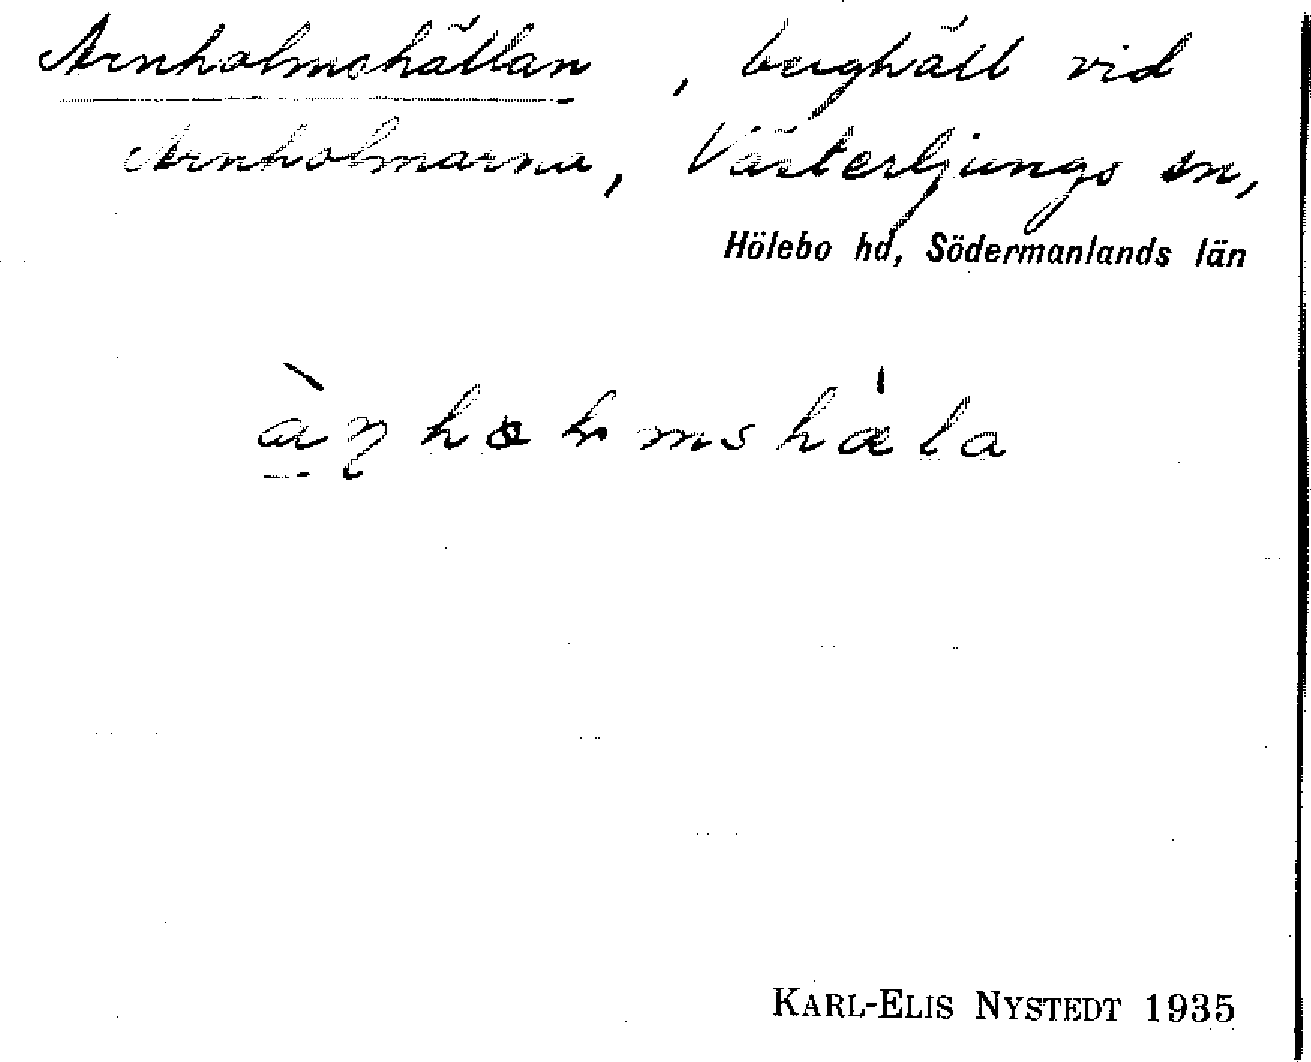 Arnholmshällan, berghäll vid
Arnholmarna, Västerljungs sn,
Hölebo hd, Södermanlands län
KARL-ELIS NYSTEDT 1935